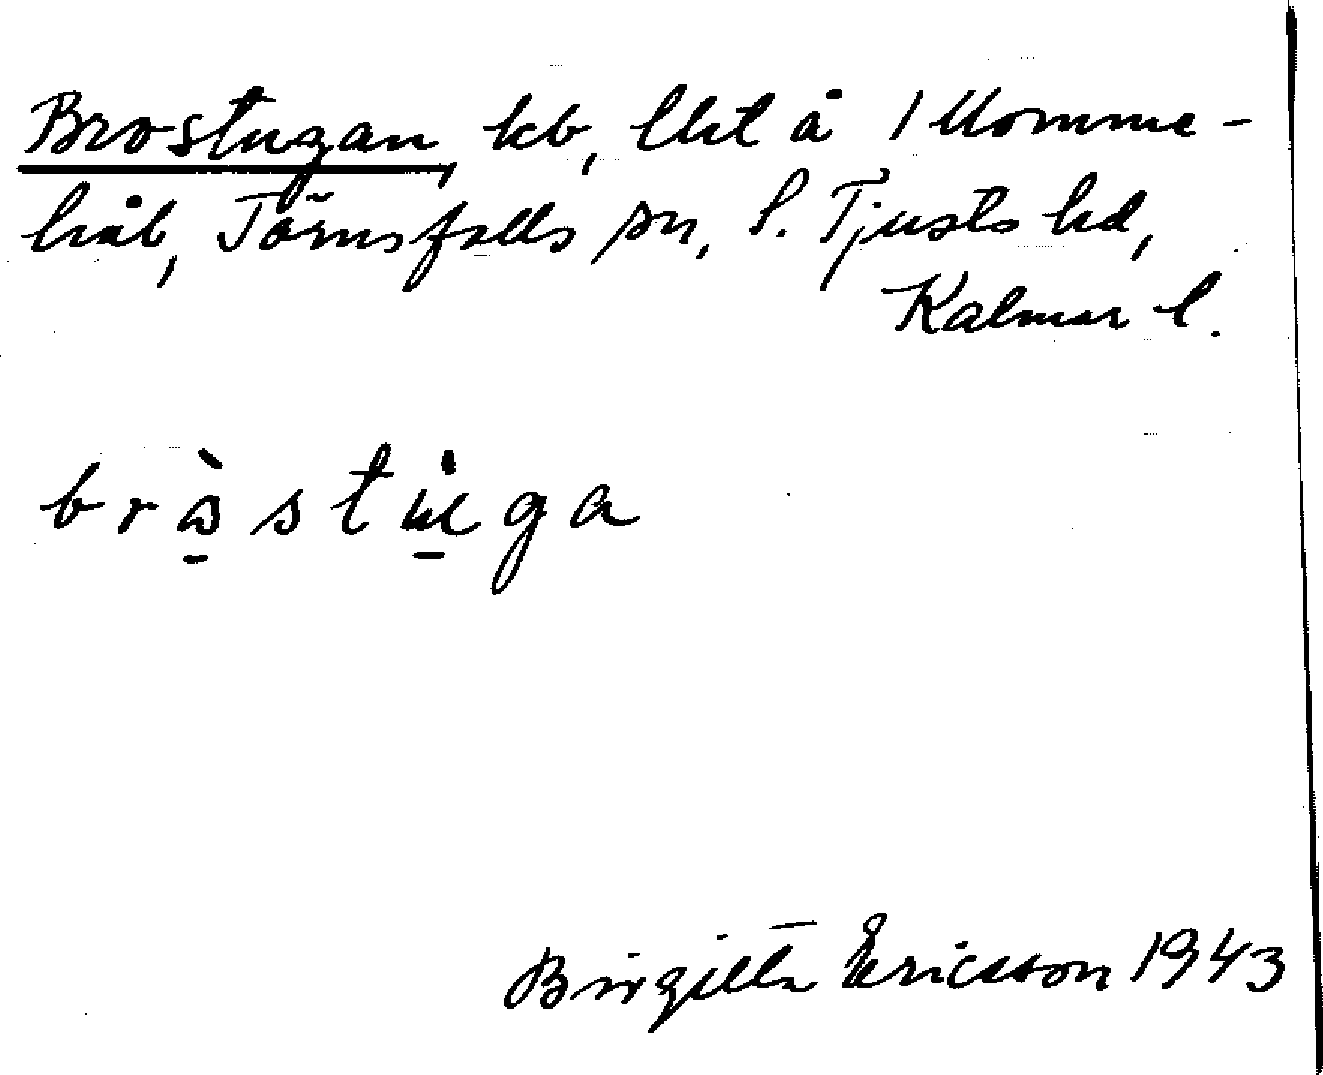 Brostugan, kb, lht å 1 Momme-
hål, Törnsfalls sn, S. Tjusts hd,
Kalmar l.
Birgitta Ericsson 1943